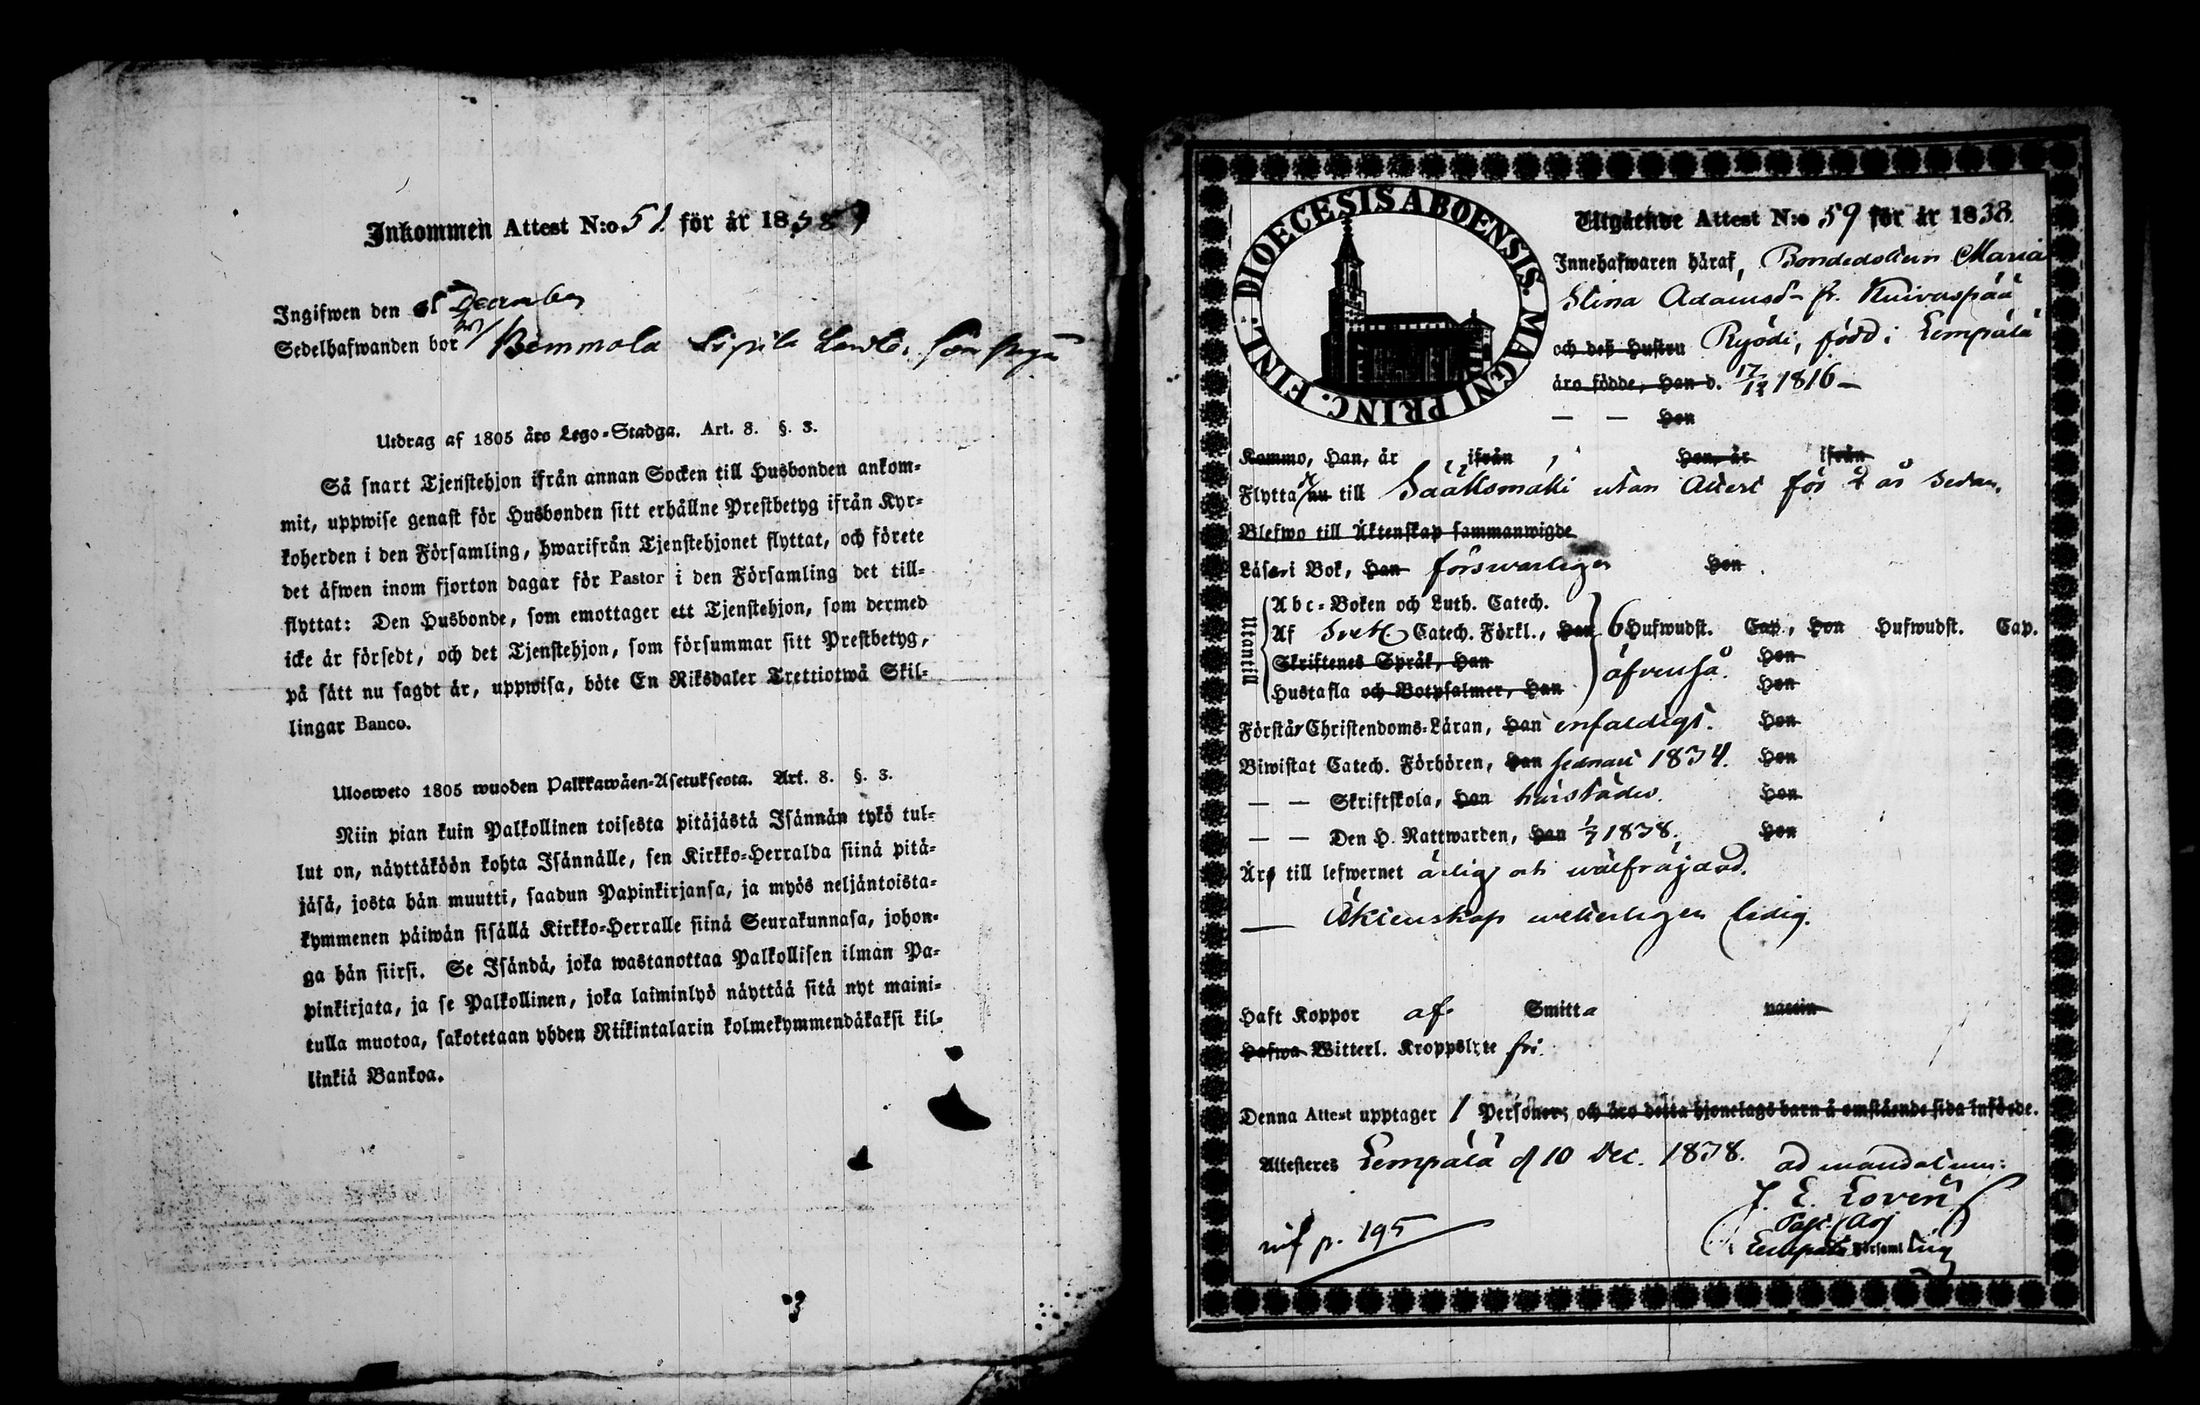 Inkommen Attest N:o 51 för år 1838
Ingifwen den December
Sedelhafwanden bor
Utdrag af 1805 års Lego-Stadga. Art. 8. §. 3.
Så snart Tjenstehjon ifrån annan Socken till Husbonden ankom-
mit, uppwise genast för Husbonden sitt erhållne Prestbetyg ifrån Kyr-
koherden i den Församling, hwarifrån Tjenstehjonet flyttat, och förete
det äfwen inom fjorton dagar för Pastor i den Församling det till-
flyttat: Den Husbonde, som emottager ett Tjenstehjon, som dermed
icke är försedt, och det Tjenstehjon, som försummar sitt Prestbetyg,
på sätt nu sagdt är, uppwisa, böte En Riksdaler Trettiotwå Skil-
lingar Banco.
Ulosweto 1805 wuoden Palkkawäen-Asetuksesta. Art. 8. §. 3.
Niin pian kuin Palkollinen toisesta pitäjästä Isännän tykö tul-
lut on, näyttäköön kohta Isännälle, sen Kirkko-Herralda siinä pitä-
jäsä, josta hän muutti, saadun Papinkirjansa, ja myös neljäntoista-
kymmenen päiwän sisällä Kirkko-Herralle siinä Seurakunnasa, johon-
ga hän siirsi. Se Isändä, joka wastanottaa Palkollisen ilman Pa-
pinkirjata, ja se Palkollinen, joka laiminlyö näyttää sitä nyt maini-
tulla muotoa, sakotetaan yhden Riikintalarin kolmekymmendäkaksi kil-
linkiä Bankoa.
DIOECESIS ABOENSIS. MAGNI PRINC. FINL:
Utgående Attest N:o 59 för år 1838
Innehafwaren häraf, Bondedottern Maria
Stina Adamsdr fr. Kuivaspää
och deß Hustru Ryödi, född i Lempälä
äro födde, Han d. 17/12 1816
— — Hon
Kommo, Han, är ifrån Hon, är ifrån
Flytta nu till Sääksmäki utan Attest för 2 år sedan.
Blefwo till Äktenskap sammanwigde
Läser i Bok, Han försvarligen Hon
Utantill
Abc-Boken och Luth. Catech.
Af Svet. Catech. Förkl., Han 6 Hufwudst. Cap., Hon Hufwudst. Cap.
Skriftenes Språk, Han Hon
Hustafla och Botpsalmer, Han äfvenså. Hon
Förstår Christendoms-Läran, Han enfaldigt. Hon
Biwistat Catech. Förhören, Han sednast 1834. Hon
— — Skriftskola, Han härstädes. Hon
— — Den H. Nattwarden, Han 1/7 1838. Hon
Är till lefwernet ärlig och wälfräjdad.
— Äktenskap wetterligen ledig.
Haft Koppor af Smitta vaccin
Hafwa Witterl. Kroppslyte fri.
Denna Attest upptager 1 Personer; och äro detta hjonelags barn å omstående sida införde.
Attesteres Lempälä d 10 Dec. 1838. ad mandatum:
J. E. Lovén
Past. Adj
Lempälä Församling
p. 195